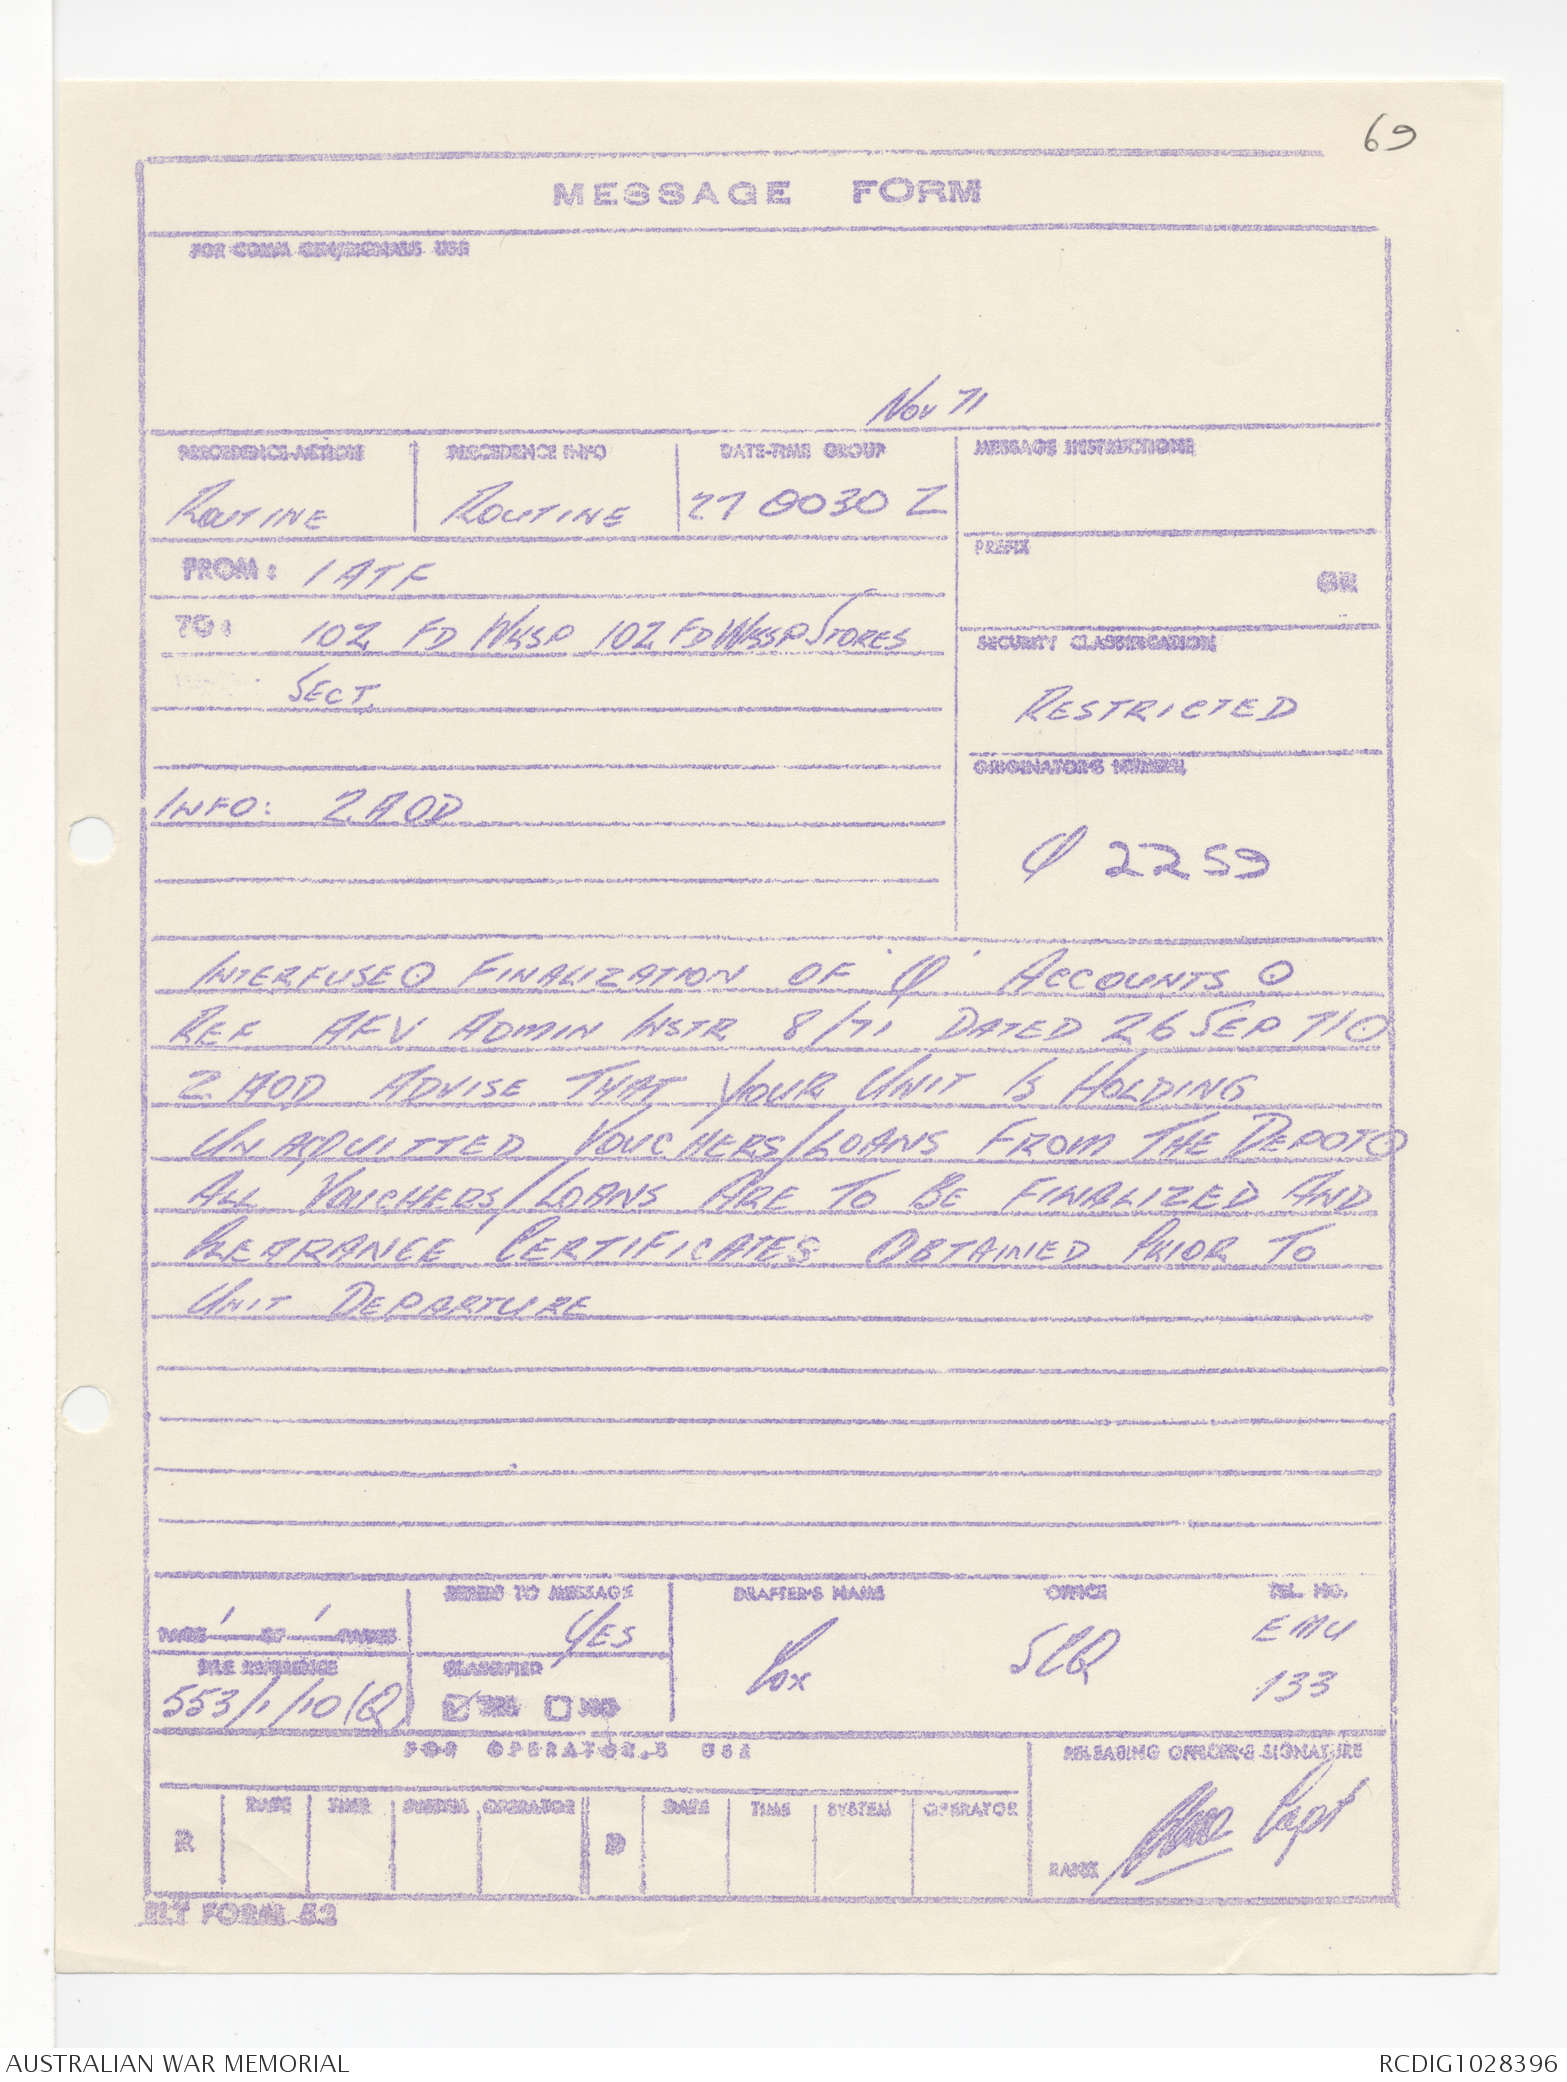 69
MESSAGE FORM
FOR COMM CEN/SIGNALS USE
Nov 71
PRECEDENCE-ACTION PRECEDENCE INFO DATE-TIME GROUP MESSAGE INSTRUCTIONS
ROUTINE ROUTINE 27 0030 Z
PREFIX
GR
FROM: 1 ATF
TO: 102 FD WKSP 102 FD WKSP STORES
SECT.
SECURITY CLASSIFICATION
RESTRICTED
ORIGINATOR'S NUMBER
INFO: 2 AOD
Q 2259
INTERFUSE ⊙ FINALIZATION OF 'Q' ACCOUNTS ⊙
REF AFV ADMIN INSTR 8/71 DATED 26 SEP 71 ⊙
2 AOD ADVISE THAT YOUR UNIT IS HOLDING
UNACQUITTED VOUCHERS/LOANS FROM THE DEPOT ⊙
ALL VOUCHERS/LOANS ARE TO BE FINALIZED AND
CLEARANCE CERTIFICATES OBTAINED PRIOR TO
UNIT DEPARTURE
PAGE 1 OF 1 PAGES
REFERS TO MESSAGE
YES
DRAFTER'S NAME OFFICE TEL. NO.
Cox SCQ EMU
133
FILE REFERENCE
553/1/10(Q)
CLASSIFIED
YES NO
FOR OPERATOR'S USE
RELEASING OFFICER'S SIGNATURE
R DATE TIME SYSTEM OPERATOR D DATE TIME SYSTEM OPERATOR
Capt
RANK
ELT FORM 52
AUSTRALIAN WAR MEMORIAL
RCDIG1028396